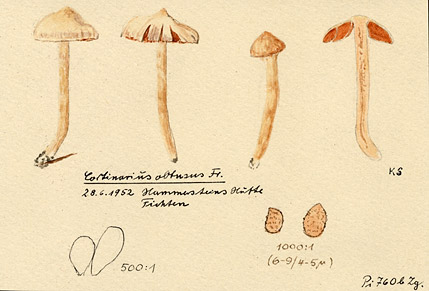 KS
Cortinarius obtusus Fr.
28.6.1952 Hammersteins Hütte
Fichten
500:1
1000:1
(6-9/4-5µ)
Pi 760b Zg.